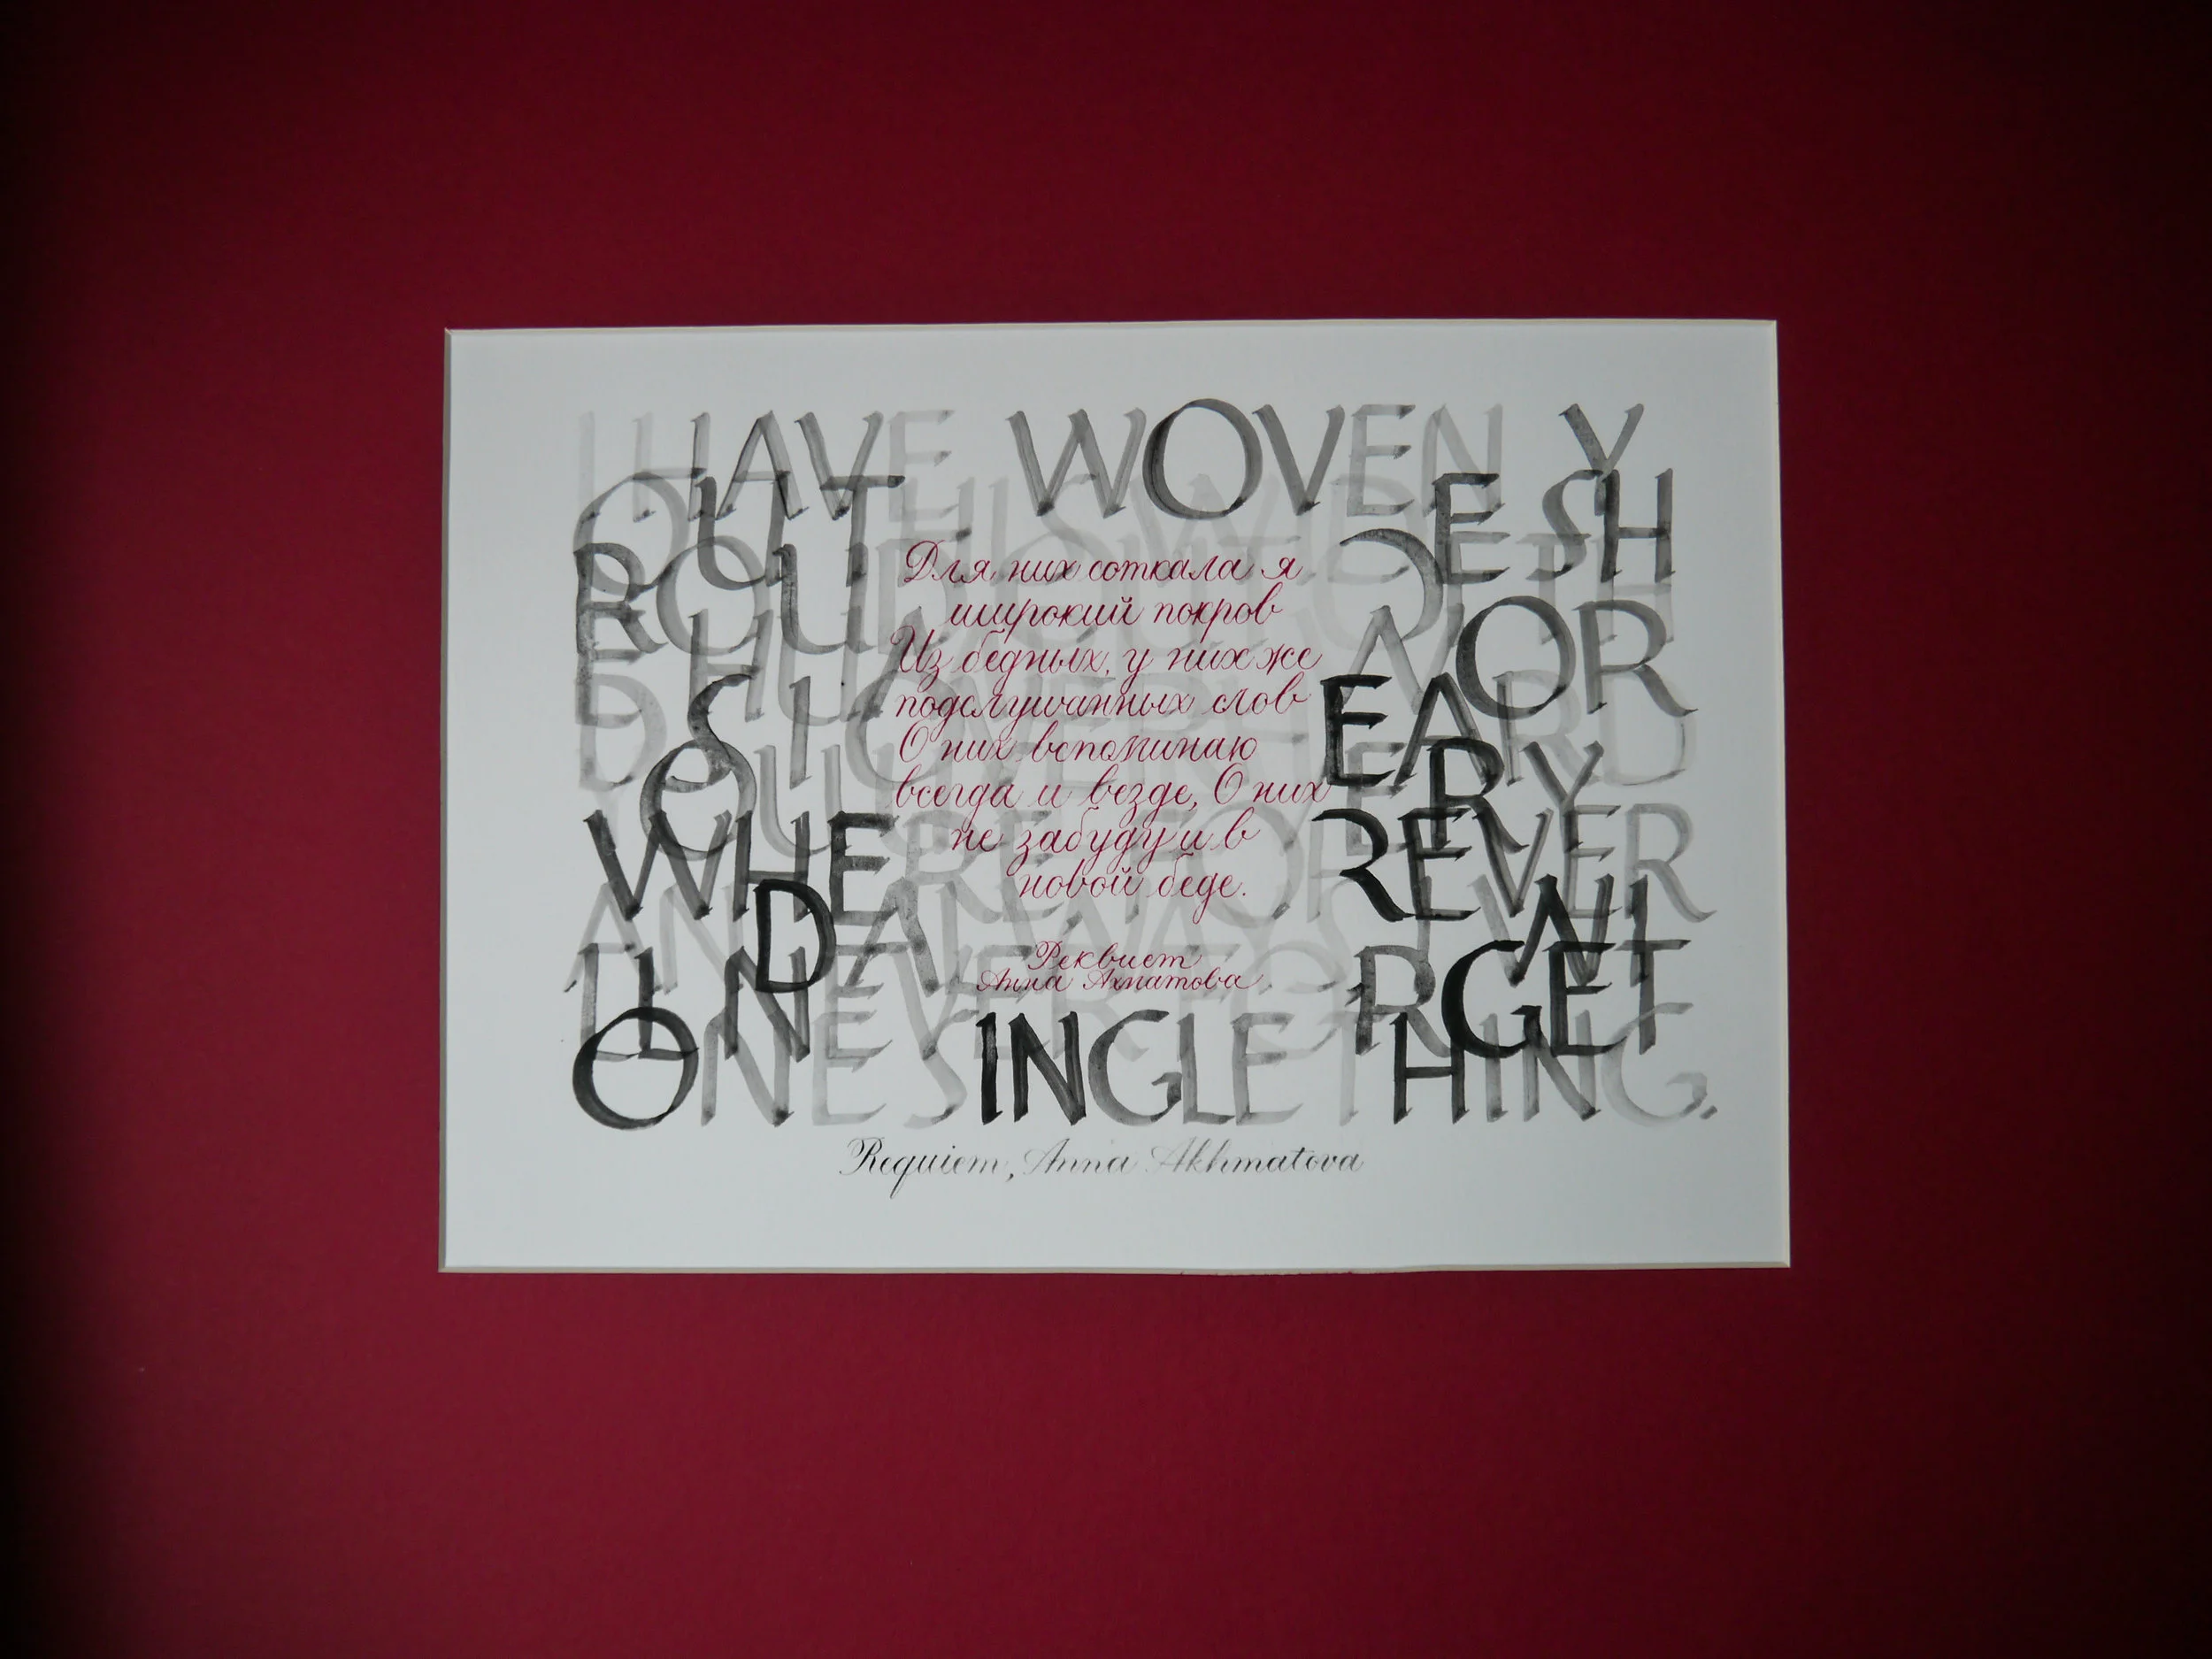 I HAVE WOVEN Y
OU THIS WIDE SH
ROUD OUT OF TH
E HU WOR
DS I OVERHEARD
YOU ERY
WHERE FOREVER
AND ALWAYS I WI
LL NEVER FORGET
ONE SINGLE THING.
Для них соткала я
широкий покров
Из бедных, у них же
подслушанных слов
О них вспоминаю
всегда и везде, О них
не забуду и в
новой беде.
Реквием
Анна Ахматова
Requiem, Anna Akhmatova